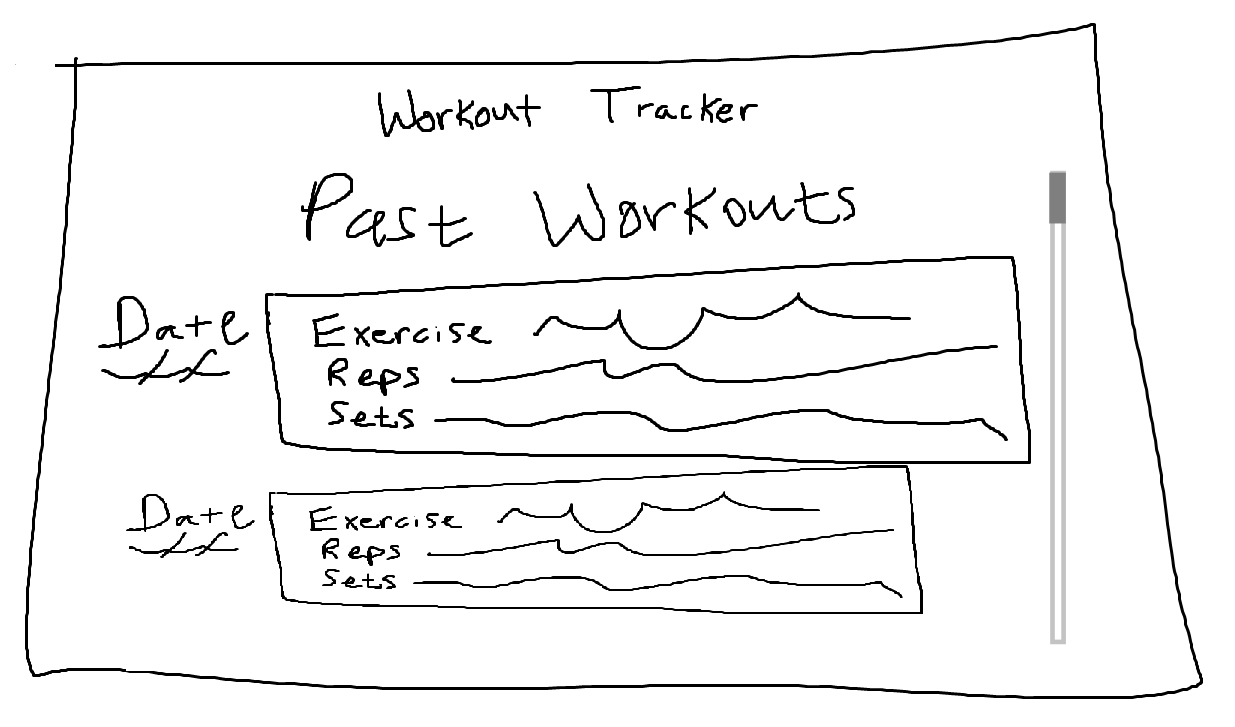 Workout Tracker
Past Workouts
Date
Exercise
Reps
Sets
Date
Exercise
Reps
Sets